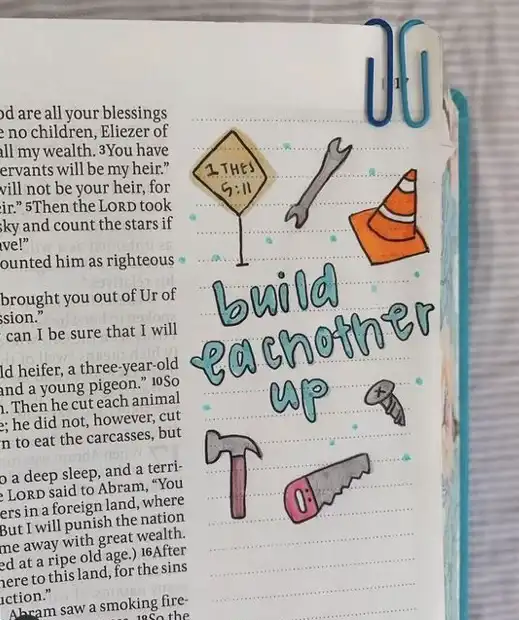 od are all your blessings
e no children, Eliezer of
all my wealth. ³You have
ervants will be my heir.”
will not be your heir, for
eir.” ⁵Then the LORD took
sky and count the stars if
ave!”
ounted him as righteous
brought you out of Ur of
ssion.”
can I be sure that I will
ld heifer, a three-year-old
and a young pigeon.” ¹⁰So
n. Then he cut each animal
e; he did not, however, cut
n to eat the carcasses, but
o a deep sleep, and a terri-
e LORD said to Abram, “You
ers in a foreign land, where
But I will punish the nation
me away with great wealth.
ed at a ripe old age.) ¹⁶After
here to this land, for the sins
uction.”
Abram saw a smoking fire-
¹⁸So the
1 THES
5:11
build
eachother
up